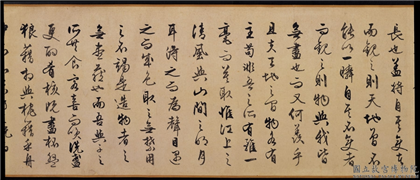 長也蓋將自其變者
而觀之則天地曾不
能以一瞬自其不變者
而觀之則物與我皆
無盡也而又何羨乎
且夫天地之間物各有
主苟非吾之所有雖一
毫而莫取惟江上之
清風與山間之明月
耳得之而為聲目遇
之而為色取之無禁用
之不竭是造物者之
無盡藏也而吾與子之
所共食客喜而笑洗盞
更酌肴核既盡杯盤
狼藉相與枕藉乎舟
國立故宮博物院